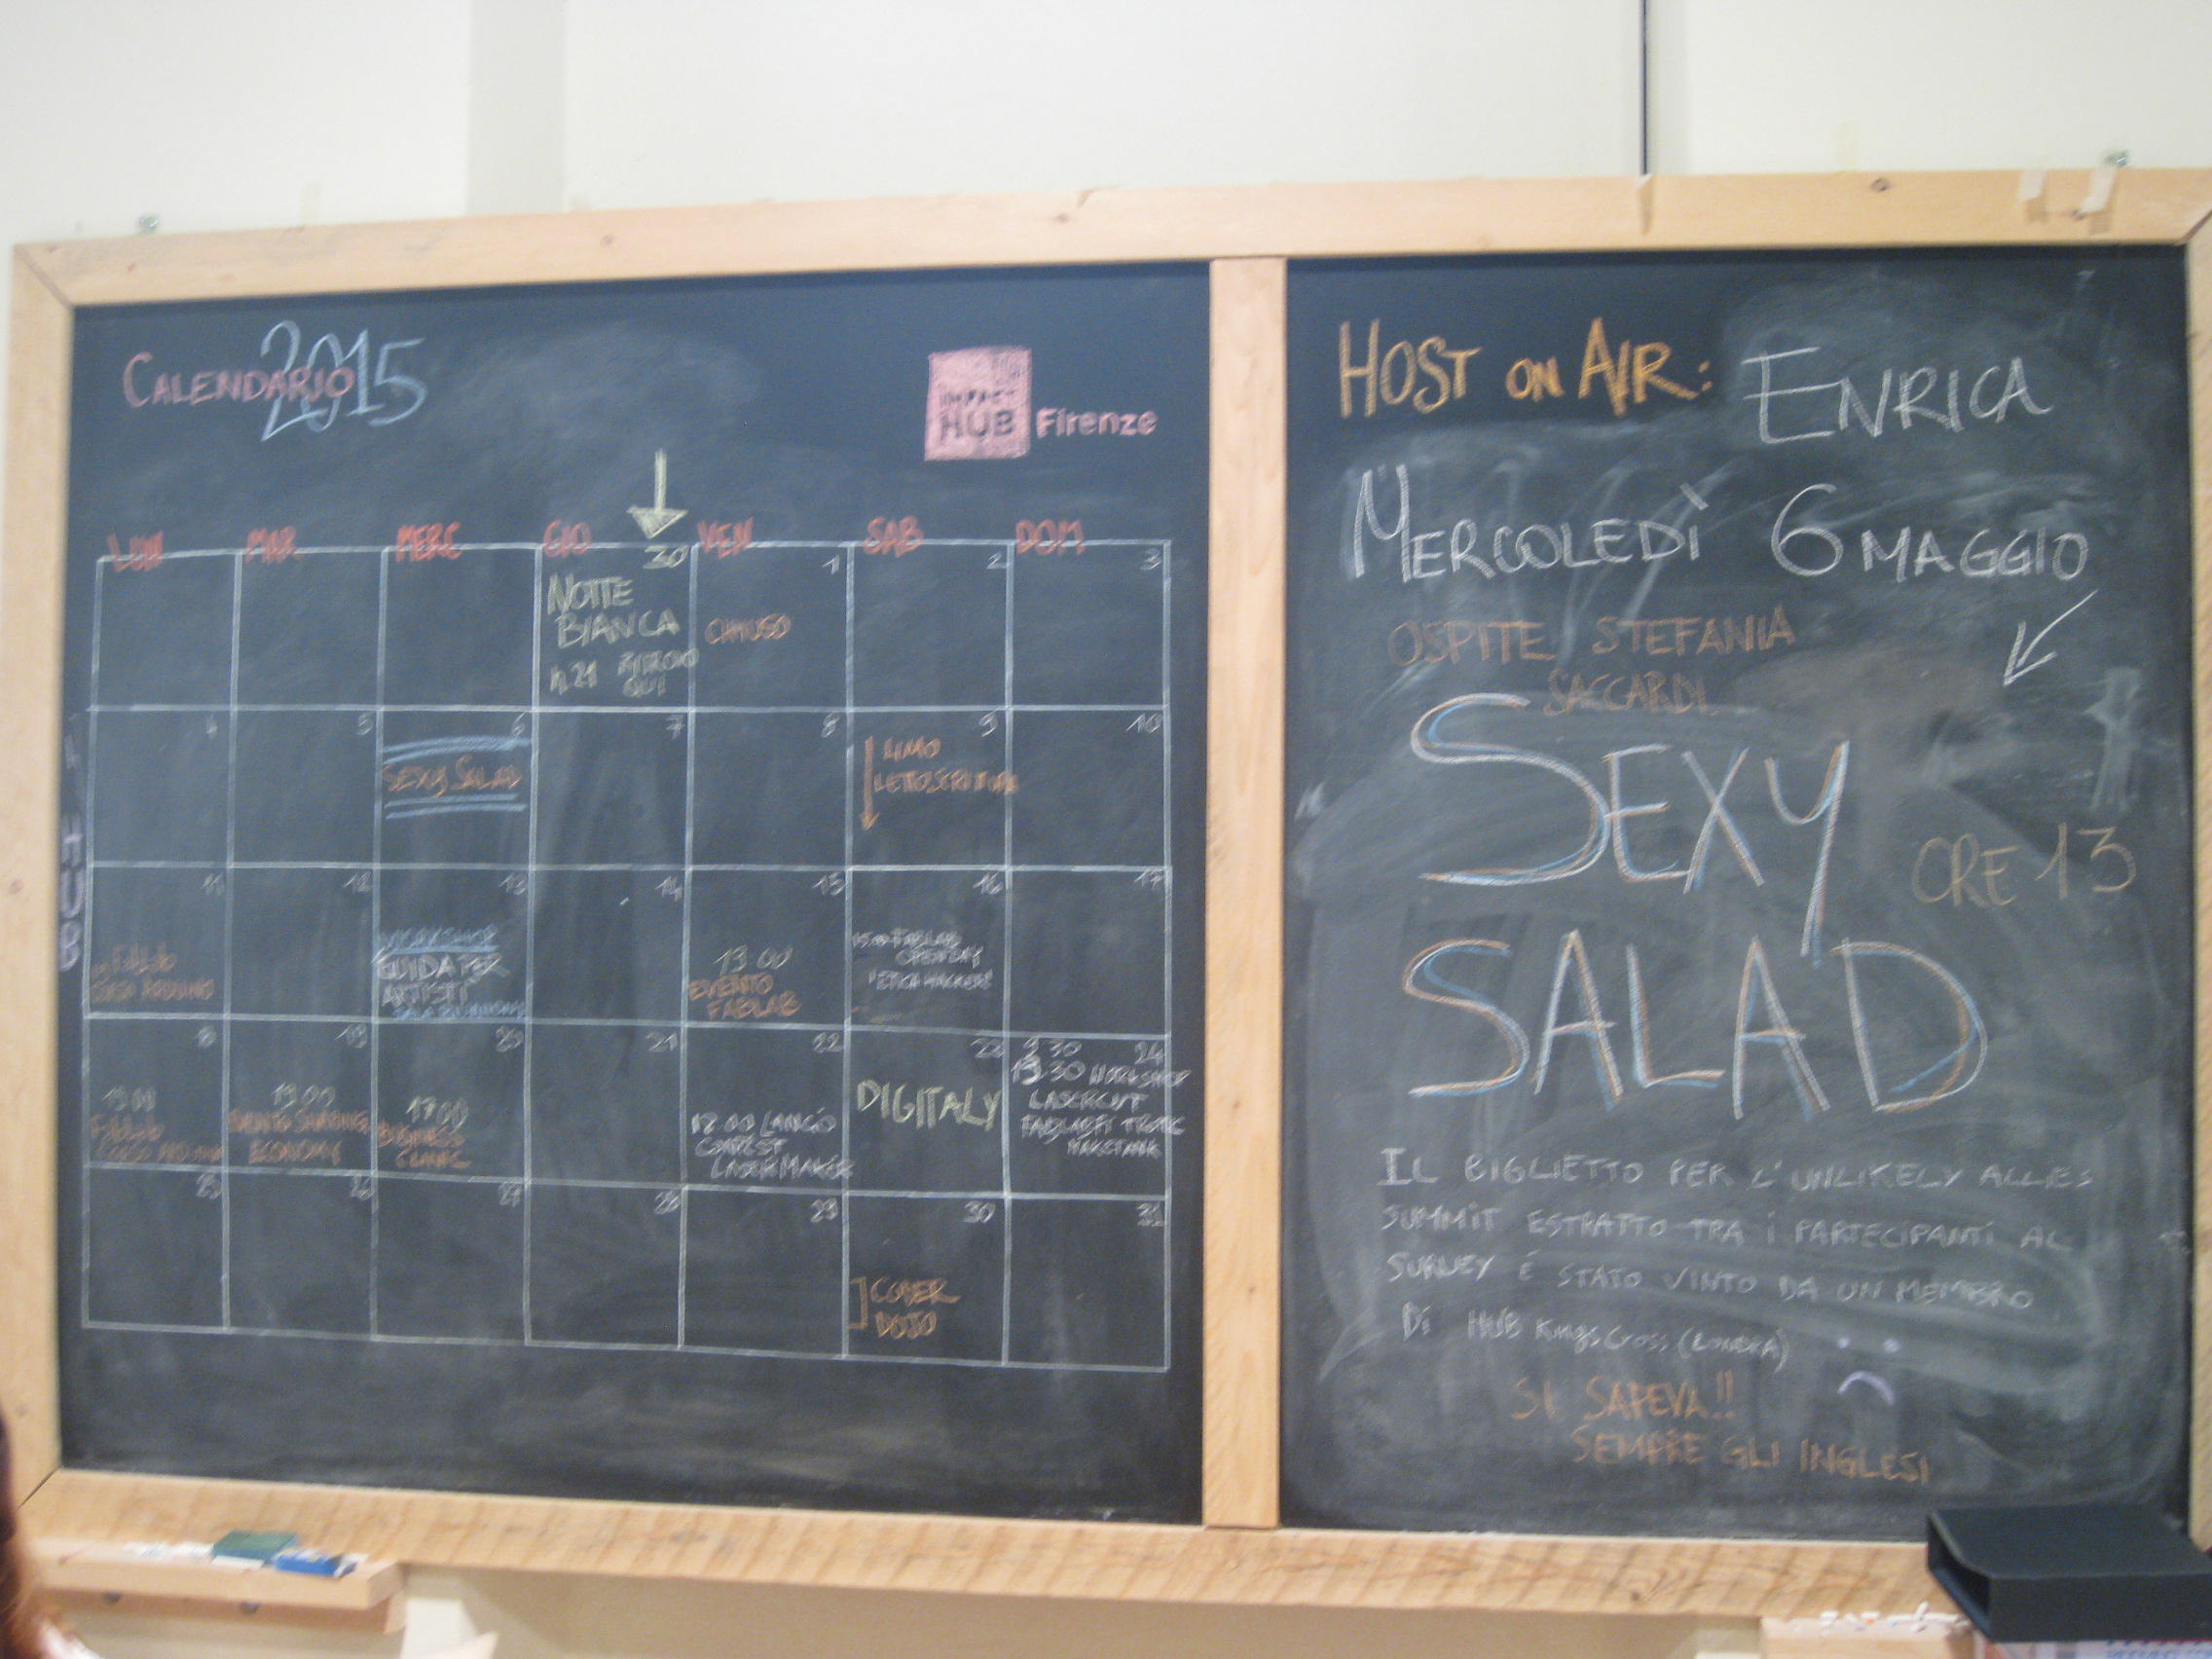 CALENDARIO 2015
IMPACT
HUB Firenze
LUN MAR MERC GIO VEN SAB DOM
30 1 2 3
NOTTE
BIANCA
h.21 RITROVO
QUI
CHIUSO
4 5 6 7 8 9 10
SEXY SALAD
LIMO
11 12 13 14 15 16 17
FabLab
CORSO ARDUINO
WORKSHOP
GUIDA PER
ARTISTI
19:00
EVENTO
FABLAB
15:00 FABLAB
OPENDAY
"ETICA HACKER"
8 19 20 21 22 23 24
19:00
FabLab
CORSO ARDUINO
19:00
EVENTO SHARING
ECONOMY
17:00
BUSINESS
CLINIC
18.00 LANCIO
CONTEST
LASERMAKER
DIGITALY
9.30
13.30 WORKSHOP
LASERCUT
MAKETANK
25 26 27 28 29 30 31
CODER
DOJO
HUB
HOST ON AIR: ENRICA
MERCOLEDÌ 6 MAGGIO
OSPITE STEFANIA
SACCARDI
SEXY
ORE 13
SALAD
IL BIGLIETTO PER L'UNLIKELY ALLIES
SUMMIT ESTRATTO TRA I PARTECIPANTI AL
SURVEY É STATO VINTO DA UN MEMBRO
Di HUB KingsCross (LONDRA)
SI SAPEVA!!
SEMPRE GLI INGLESI